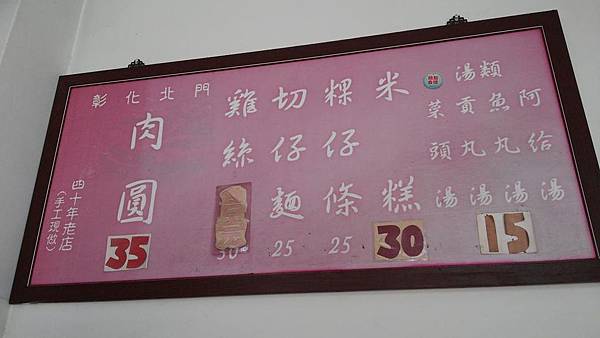 彰化北門
肉圓
35
四十年老店
(手工現做)
雞絲
30
切仔麵
25
粿仔條
25
米糕
30
湯類
阿給湯
魚丸湯
貢丸湯
菜頭湯
15